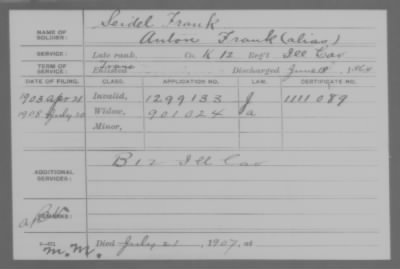 NAME OF SOLDIER: Seidel Frank
Anton Frank (alias)
SERVICE: Late rank, Co. K 12 Reg't Ill Cav
TERM OF SERVICE: Enlisted , Discharged June 18, 1864
DATE OF FILING. CLASS. APPLICATION NO. LAW. CERTIFICATE NO.
1903 Apr 21 Invalid, 1299133 J 1111089
1908 July 20 Widow, 901024 a
Minor,
ADDITIONAL SERVICES: B 12 Ill Cav
REMARKS:
M.M. Died July 21, 1907, at